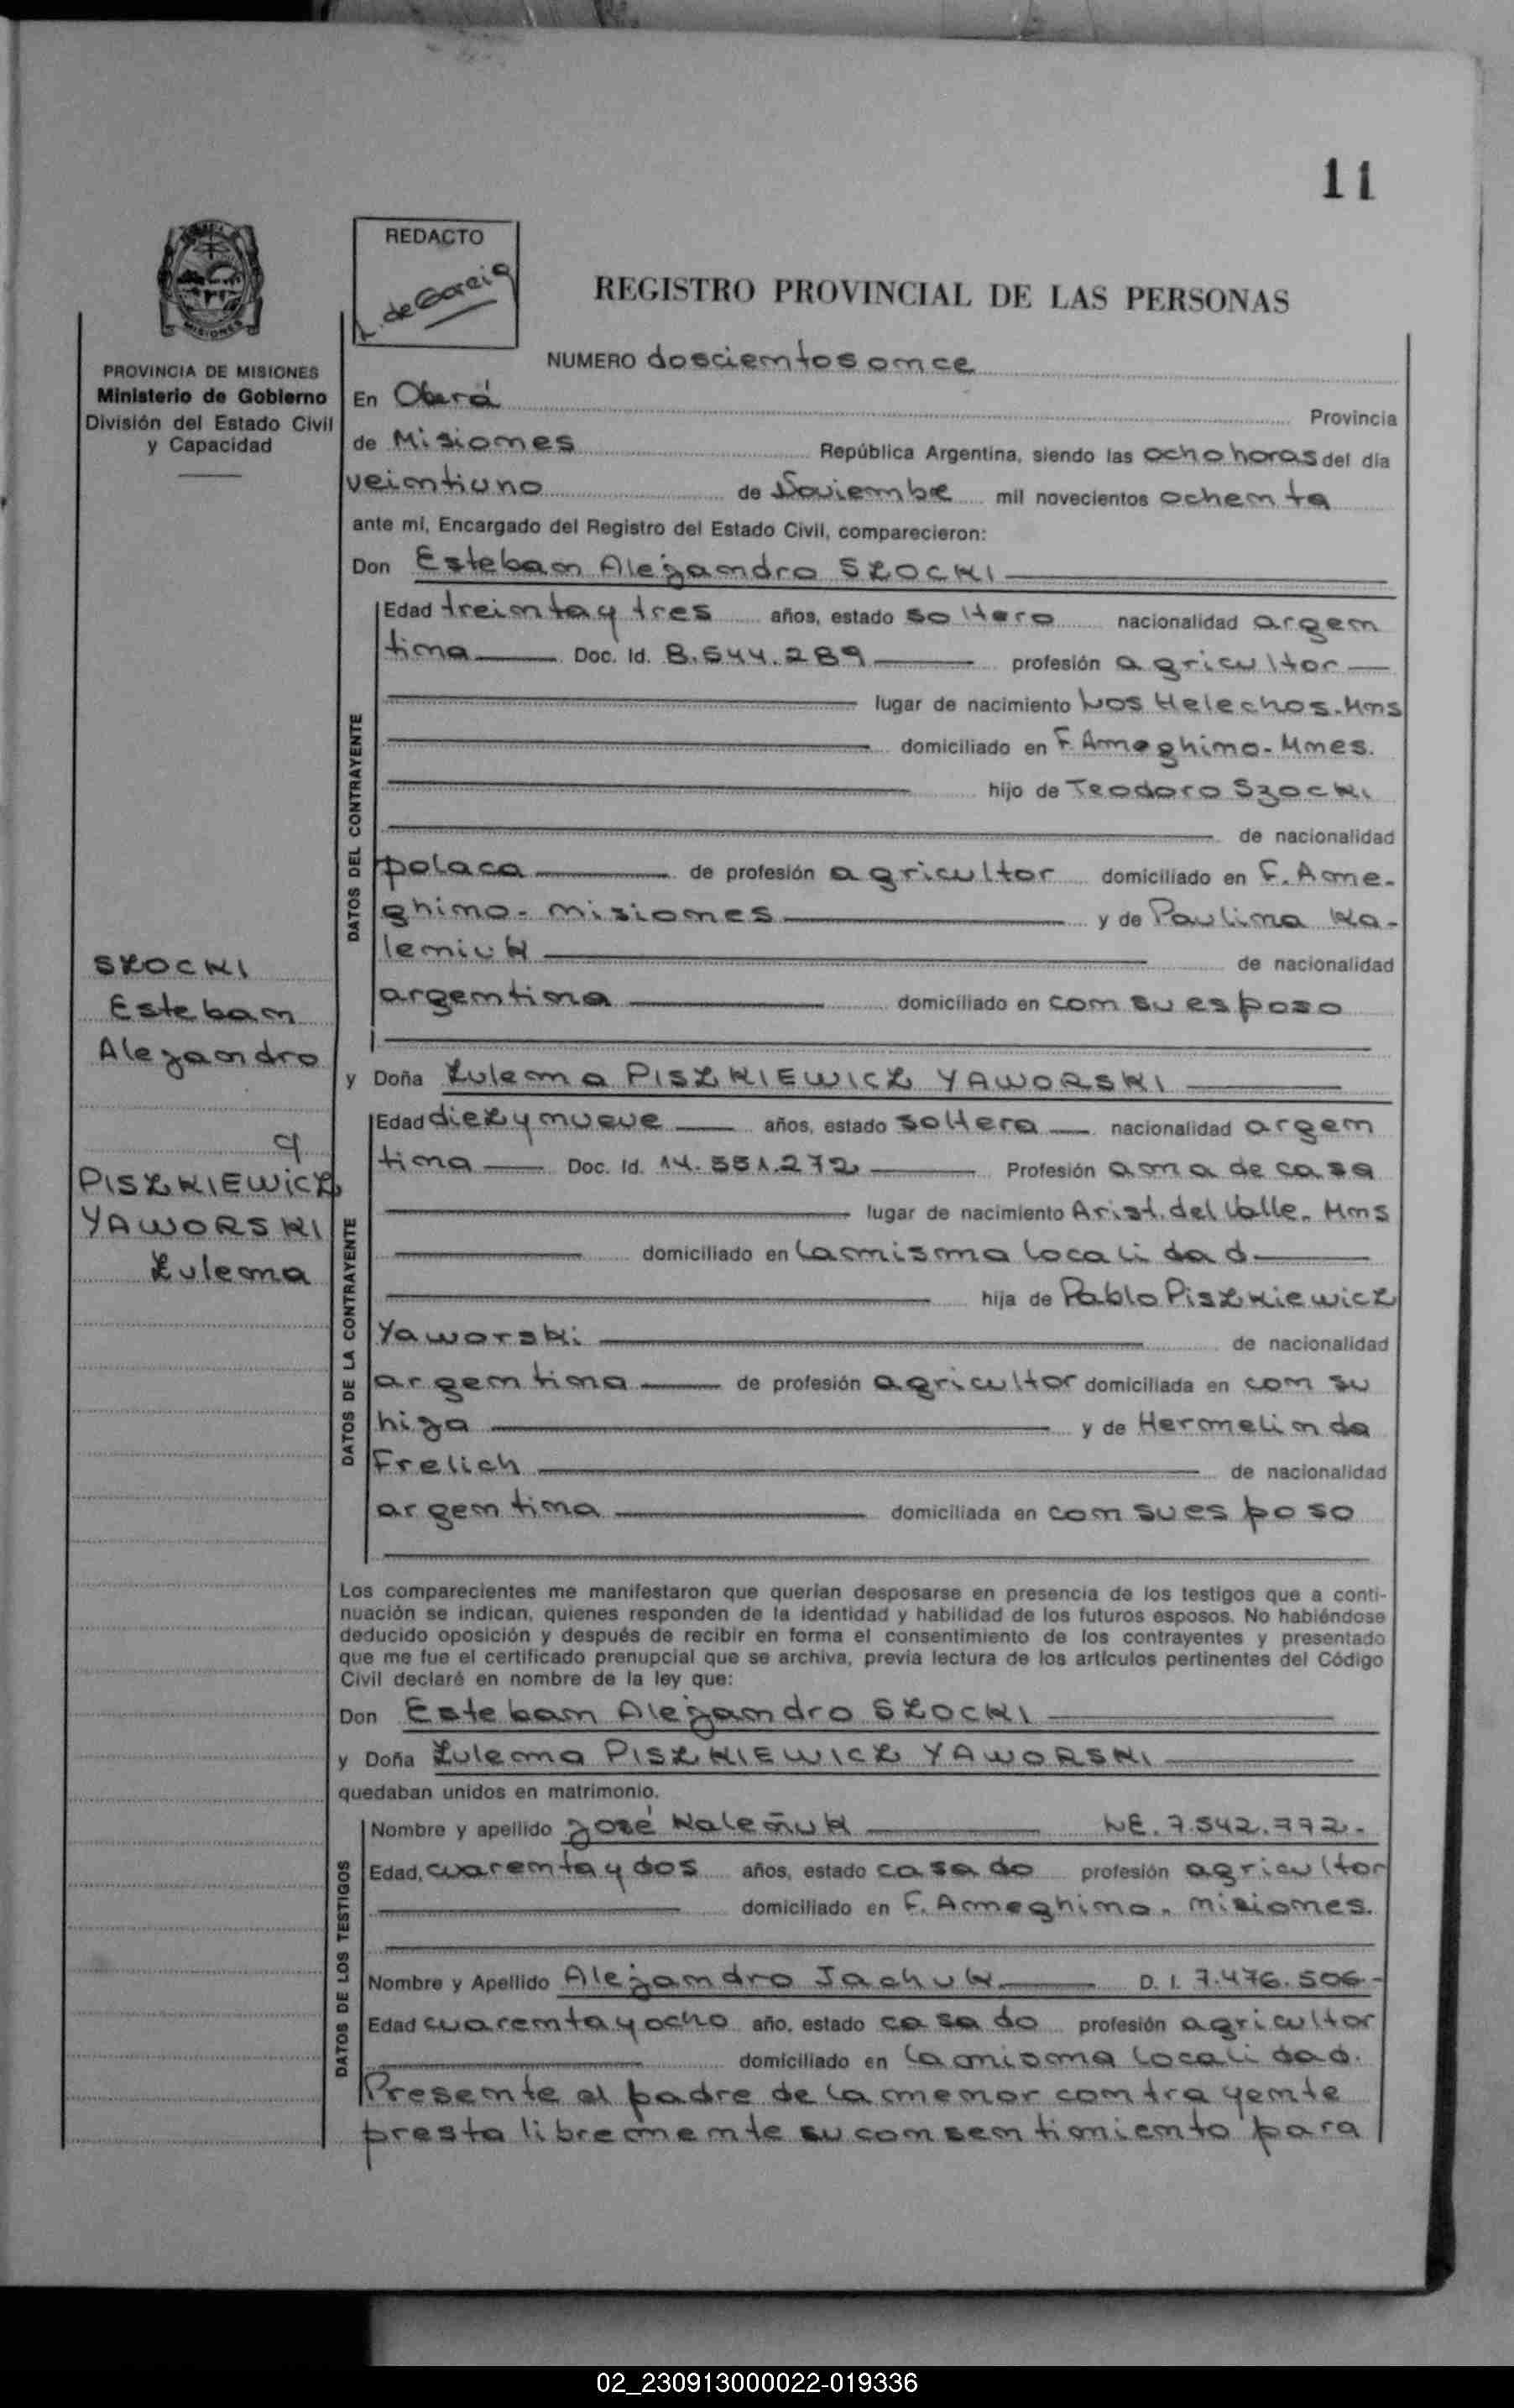 11
REDACTO
L. de Garcia
REGISTRO PROVINCIAL DE LAS PERSONAS
MISIONES
PROVINCIA DE MISIONES
Ministerio de Gobierno
División del Estado Civil
y Capacidad
NUMERO doscientos once
En Oberá Provincia
de Misiones República Argentina, siendo las ocho horas del día
veintiuno de Noviembre mil novecientos ochenta
ante mí, Encargado del Registro del Estado Civil, comparecieron:
Don Esteban Alejandro SZOCKI
DATOS DEL CONTRAYENTE
Edad treinta y tres años, estado soltero nacionalidad argen
tina Doc. Id. 8.544.289 profesión agricultor
lugar de nacimiento Los Helechos. Mns
domiciliado en F. Ameghino - Mnes.
hijo de Teodoro Szocki
de nacionalidad
polaca de profesión agricultor domiciliado en F. Ame-
ghino - Misiones y de Paulina Ka-
leniuk de nacionalidad
argentina domiciliado en con su esposo
SZOCKI
Esteban
Alejandro
y
PISZKIEWICZ
YAWORSKI
Zulema
y Doña Zulema PISZKIEWICZ YAWORSKI
DATOS DE LA CONTRAYENTE
Edad diez y nueve años, estado soltera nacionalidad argen
tina Doc. Id. 14.551.272 Profesión ama de casa
lugar de nacimiento Arist. del Valle. Mns
domiciliado en la misma localidad
hija de Pablo Piszkiewicz
Yaworski de nacionalidad
argentina de profesión agricultor domiciliada en con su
hija y de Hermelinda
Frelich de nacionalidad
argentina domiciliada en con su esposo
Los comparecientes me manifestaron que querían desposarse en presencia de los testigos que a conti-
nuación se indican, quienes responden de la identidad y habilidad de los futuros esposos. No habiéndose
deducido oposición y después de recibir en forma el consentimiento de los contrayentes y presentado
que me fue el certificado prenupcial que se archiva, previa lectura de los artículos pertinentes del Código
Civil declaré en nombre de la ley que:
Don Esteban Alejandro SZOCKI
y Doña Zulema PISZKIEWICZ YAWORSKI
quedaban unidos en matrimonio.
DATOS DE LOS TESTIGOS
Nombre y apellido José Kaleñuk LE. 7.542.772.-
Edad, cuarenta y dos años, estado casado profesión agricultor
domiciliado en F. Ameghino. Misiones.
Nombre y Apellido Alejandro Jachuk D. I. 7.476.506-
Edad cuarenta y ocho año, estado casado profesión agricultor
domiciliado en la misma localidad.
Presente el padre de la menor contrayente
presta libremente su consentimiento para
02_230913000022-019336